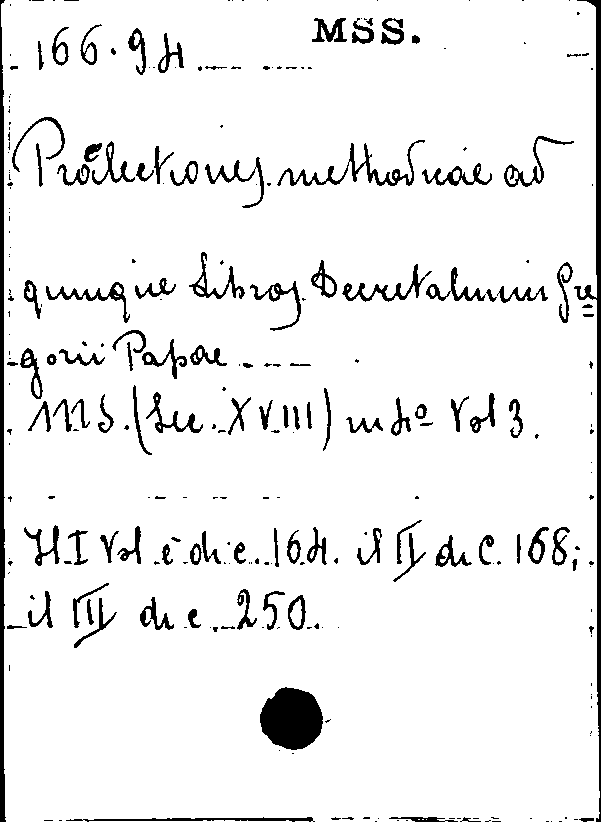 MSS.
166.94
Praelectiones methodicae ad
quinque Libros Decretalium Gre=
gorii Papae
MS. (Sec. XVIII) in 4º Vol 3.
Il I Vol è di c. 164. il II di C. 168;
il III di c. 250.